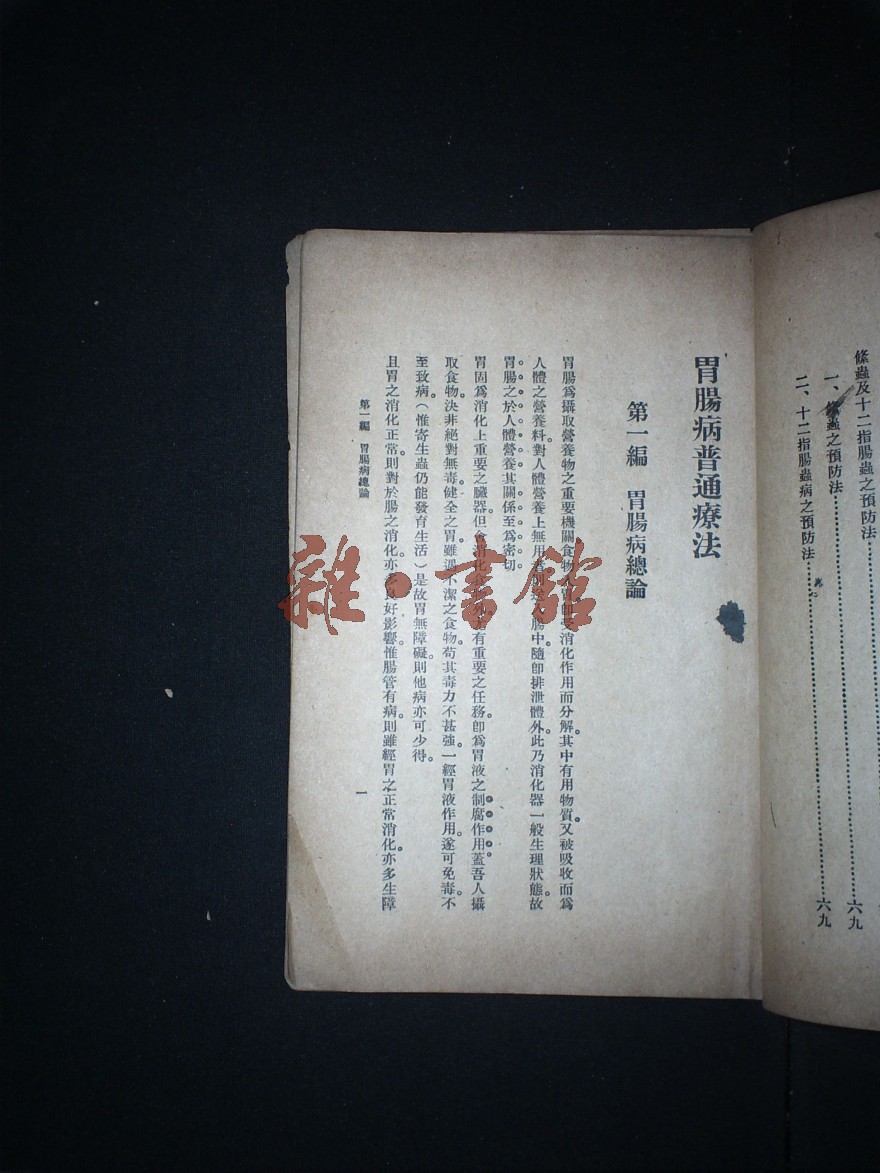 條蟲及十二指腸蟲之預防法……六九
一、條蟲之預防法……六九
二、十二指腸蟲病之預防法……六九
胃腸病普通療法
第一編 胃腸病總論
胃腸爲攝取營養物之重要機關食物入胃卽受消化作用而分解。其中有用物質。又被吸收而爲
人體之營養料。對人體營養上無用者則送入腸中。隨卽排泄體外。此乃消化器一般生理狀態。故
胃腸之於人體營養其關係至爲密切。
胃固爲消化上重要之臟器。但會消化食物外尤有重要之任務。卽爲胃液之制腐作用。蓋吾人攝
取食物。決非絕對無毒。健全之胃。雖遇不潔之食物。苟其毒力不甚強。一經胃液作用。遂可免毒。不
至致病(惟寄生蟲仍能發育生活)是故胃無障礙。則他病亦可少得。
且胃之消化正常。則對於腸之消化。亦多良好影響。惟腸管有病。則雖經胃之正常消化。亦多生障
第一編 胃腸病總論
一
雜·書館